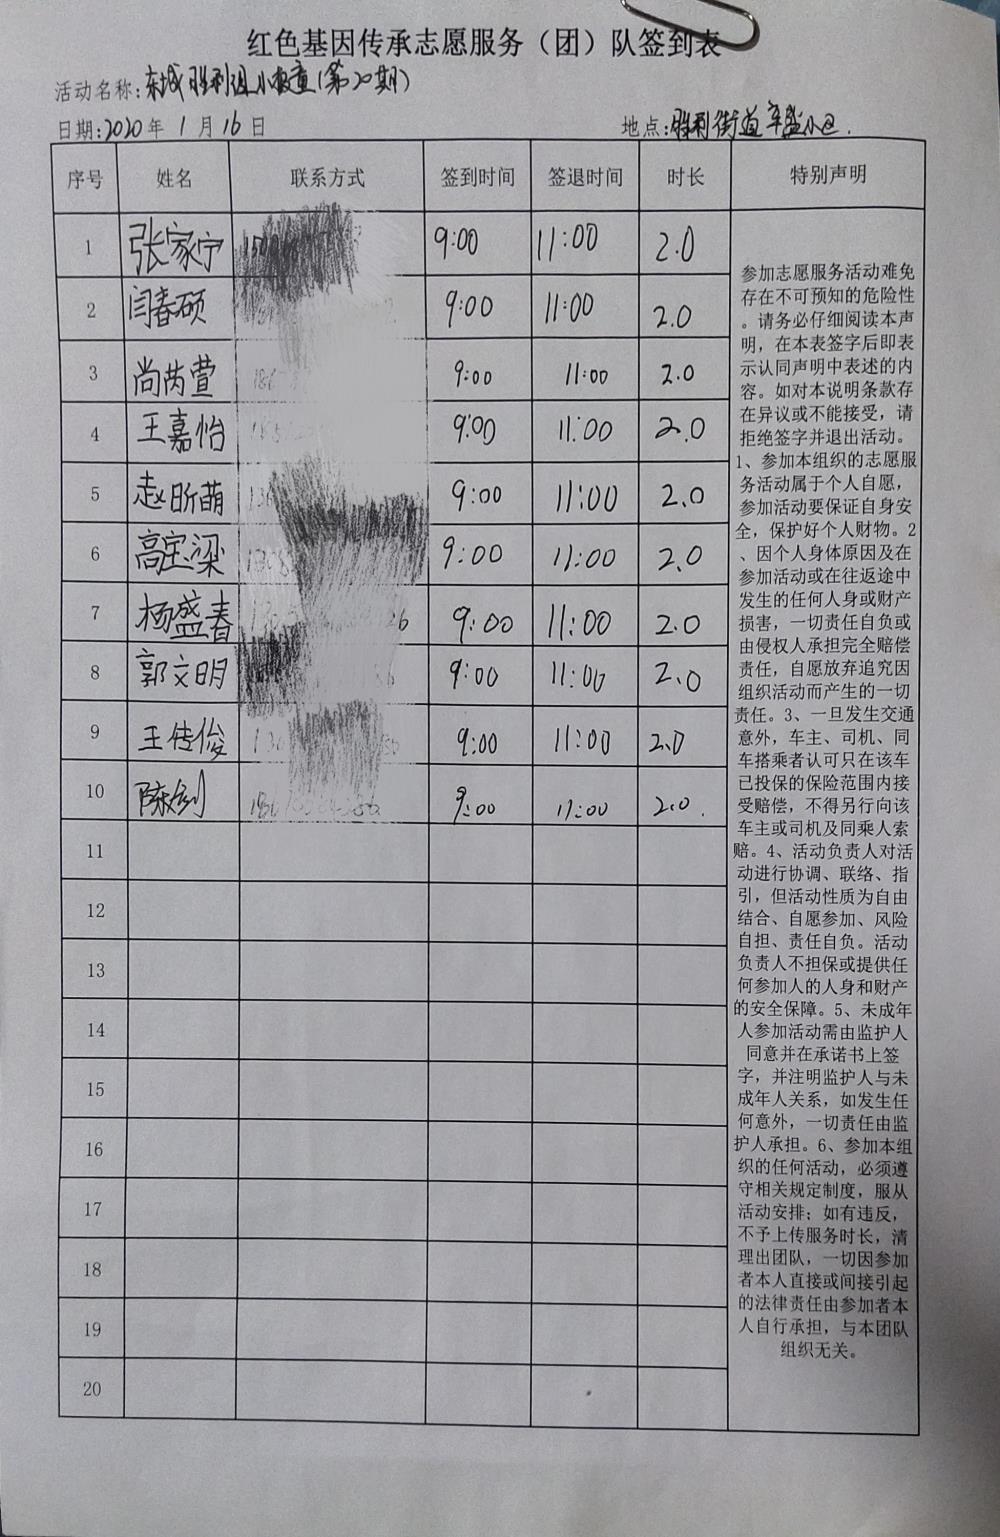 红色基因传承志愿服务（团）队签到表
活动名称:东城胜利组小(第20期)
日期:2020年 1 月 16 日 地点:胜利街道辛盛小区.
序号 姓名 联系方式 签到时间 签退时间 时长 特别声明
1 张家宁 9:00 11:00 2.0
2 闫春硕 9:00 11:00 2.0
3 尚芮萱 9:00 11:00 2.0
4 王嘉怡 9:00 11:00 2.0
5 赵昕萌 9:00 11:00 2.0
6 高宝梁 9:00 11:00 2.0
7 杨盛春 9:00 11:00 2.0
8 郭文明 9:00 11:00 2.0
9 王传俊 9:00 11:00 2.0
10 9:00 11:00 2.0.
11
12
13
14
15
16
17
18
19
20
参加志愿服务活动难免
存在不可预知的危险性
。请务必仔细阅读本声
明，在本表签字后即表
示认同声明中表述的内
容。如对本说明条款存
在异议或不能接受，请
拒绝签字并退出活动。
1、参加本组织的志愿服
务活动属于个人自愿，
参加活动要保证自身安
全，保护好个人财物。2
、因个人身体原因及在
参加活动或在往返途中
发生的任何人身或财产
损害，一切责任自负或
由侵权人承担完全赔偿
责任，自愿放弃追究因
组织活动而产生的一切
责任。3、一旦发生交通
意外，车主、司机、同
车搭乘者认可只在该车
已投保的保险范围内接
受赔偿，不得另行向该
车主或司机及同乘人索
赔。4、活动负责人对活
动进行协调、联络、指
引，但活动性质为自由
结合、自愿参加、风险
自担、责任自负。活动
负责人不担保或提供任
何参加人的人身和财产
的安全保障。5、未成年
人参加活动需由监护人
同意并在承诺书上签
字，并注明监护人与未
成年人关系，如发生任
何意外，一切责任由监
护人承担。6、参加本组
织的任何活动，必须遵
守相关规定制度，服从
活动安排；如有违反，
不予上传服务时长，清
理出团队，一切因参加
者本人直接或间接引起
的法律责任由参加者本
人自行承担，与本团队
组织无关。